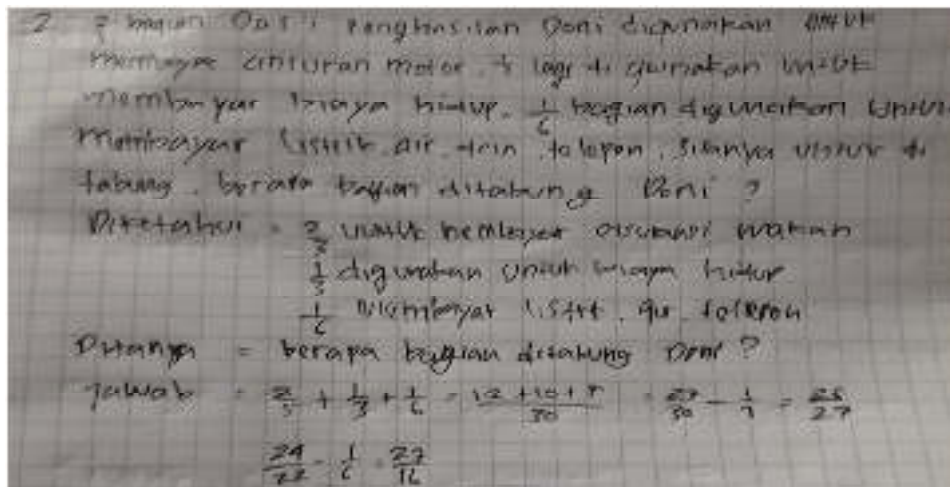 2 bagian Dari Penghasilan Doni digunakan untuk
membayar cicilan motor. 1/3 lagi di gunakan untuk
membayar biaya hidup. 1/6 bagian digunakan untuk
membayar listrik, air, dan telepon. Sisanya untuk di
tabung. berapa bagian ditabung Doni ?
Diketahui = 2/5 untuk
1/3 digunakan untuk biaya hidup
1/6 membayar listrik, air, telepon
Ditanya = berapa bagian ditabung Doni ?
Jawab = 2/5 + 1/3 + 1/6 = (12 + 10 + 5)/30 = 27/30 - 1/1 = 26/27
1/6 = 27/16